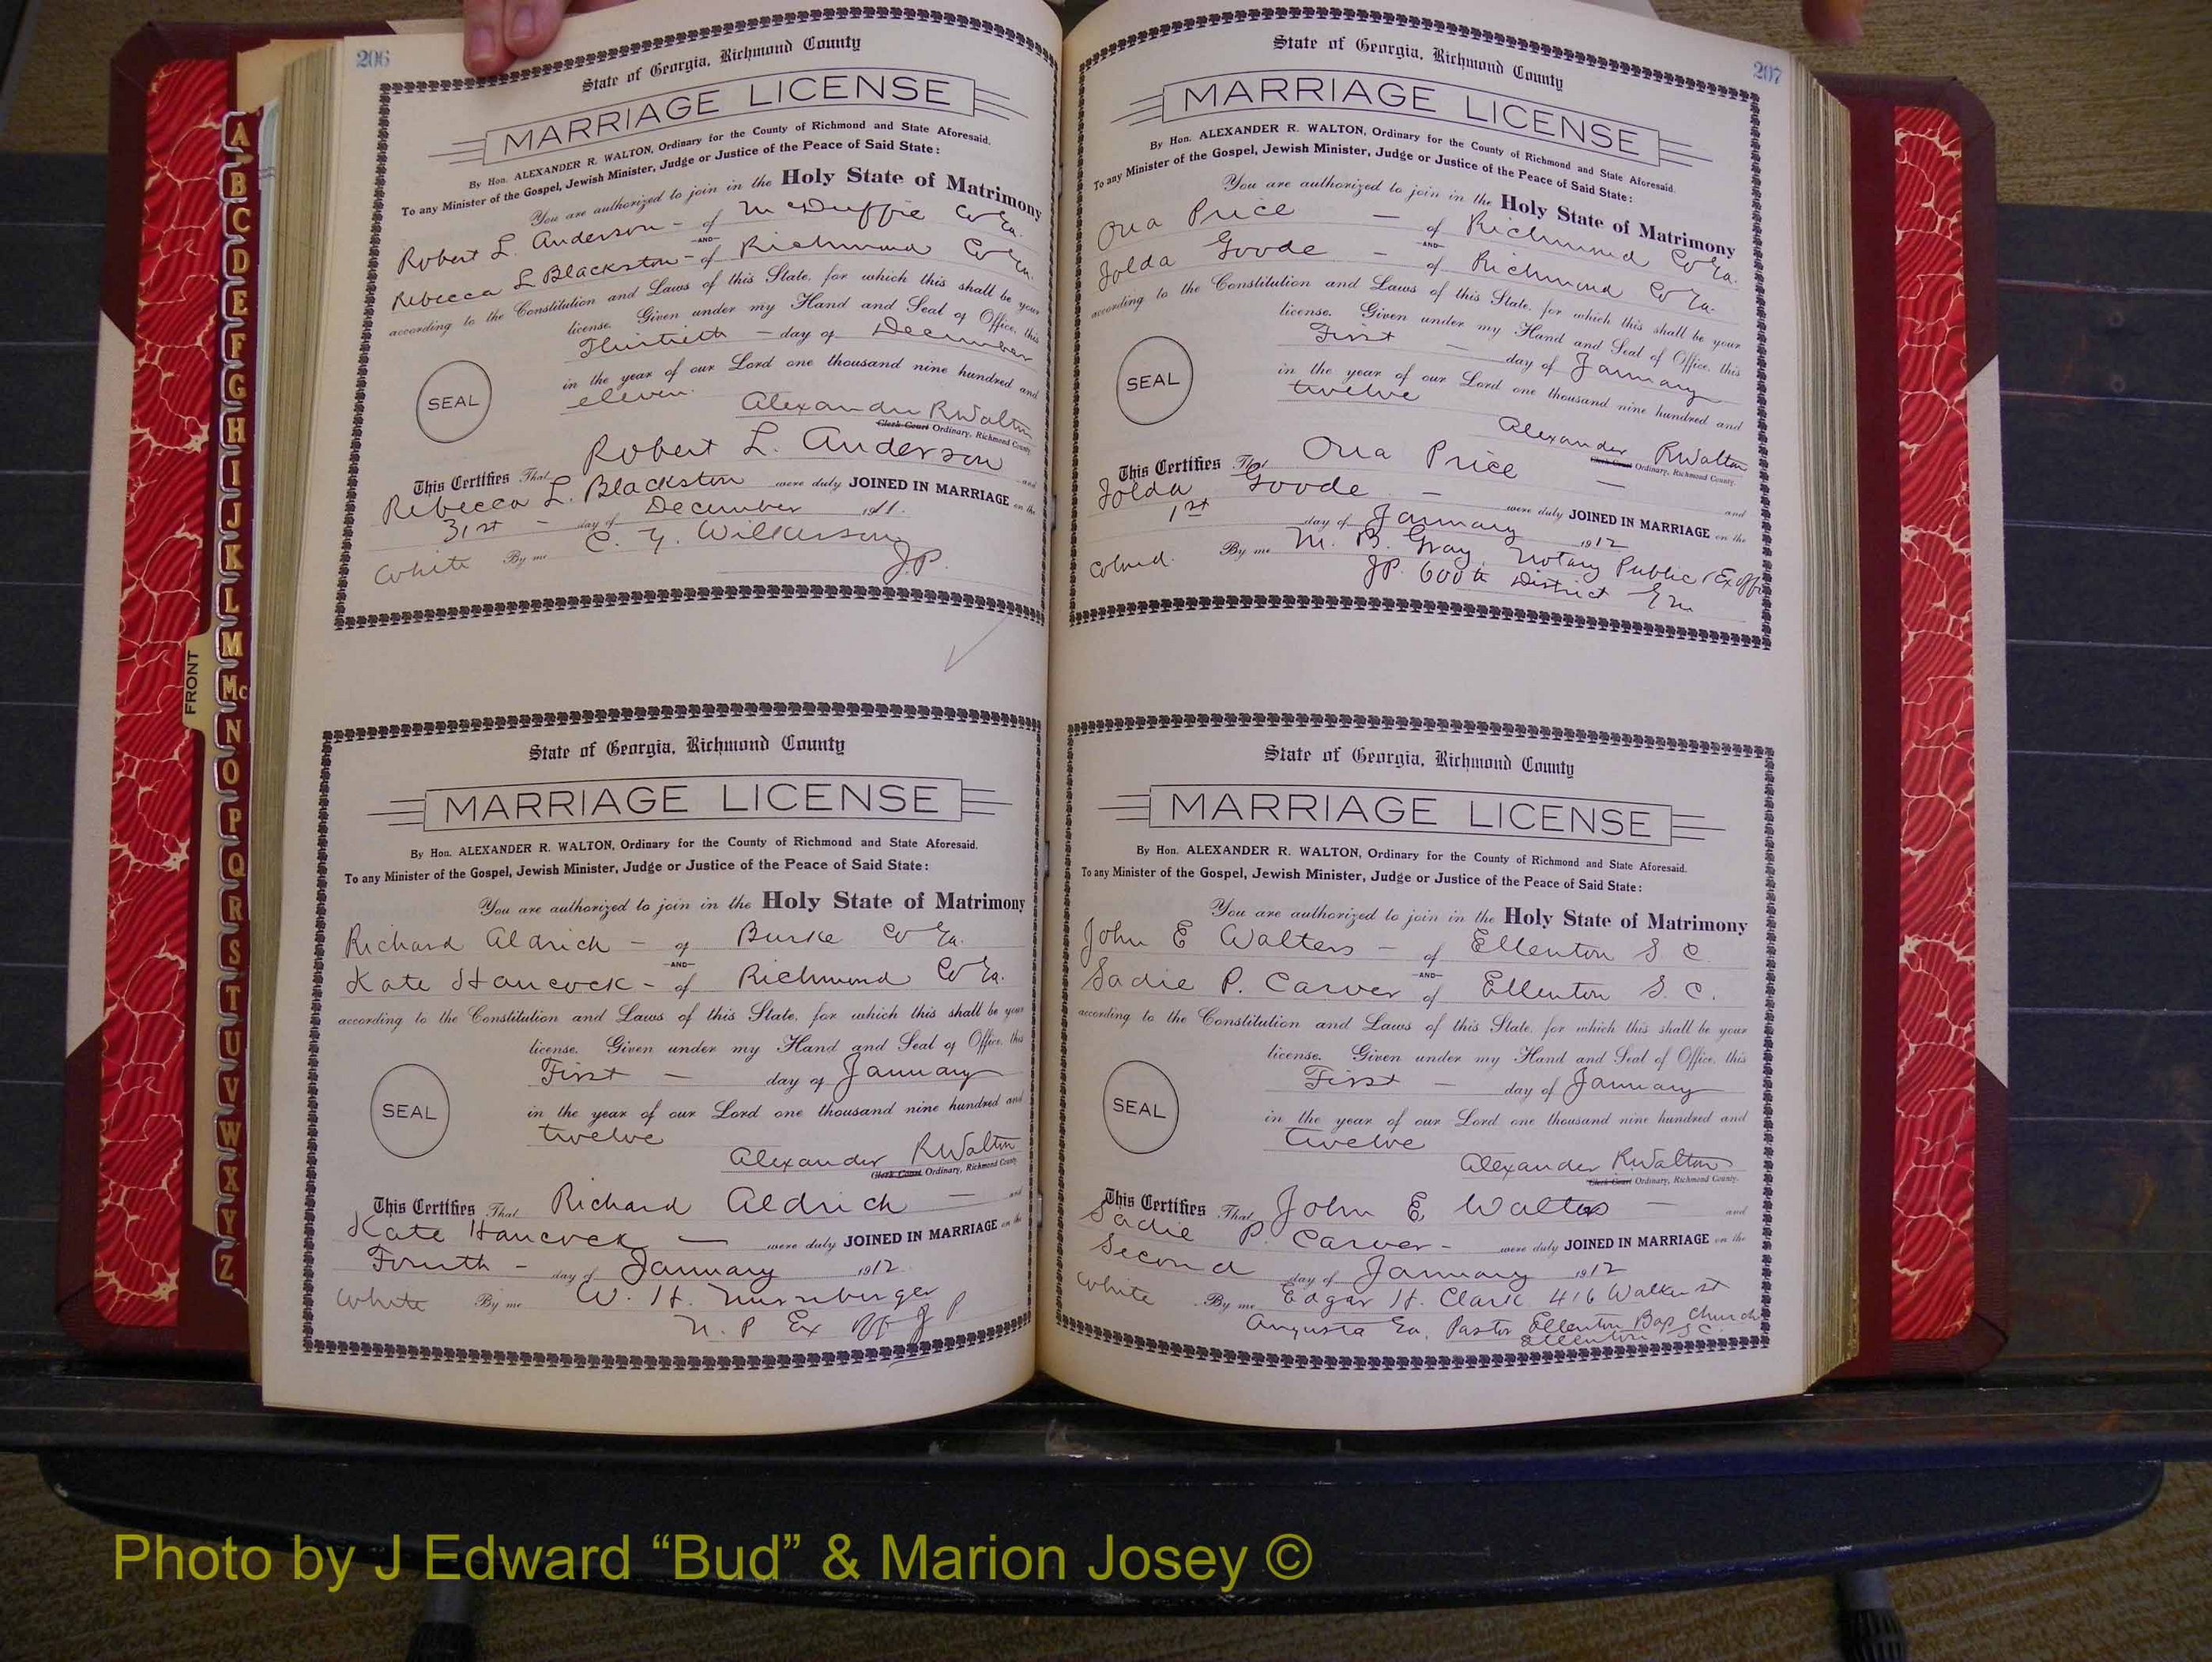 206
State of Georgia, Richmond County
MARRIAGE LICENSE
By Hon. ALEXANDER R. WALTON, Ordinary for the County of Richmond and State Aforesaid.
To any Minister of the Gospel, Jewish Minister, Judge or Justice of the Peace of Said State:
You are authorized to join in the Holy State of Matrimony
Robert L. Anderson - of McDuffie Co Ga.
-AND-
Rebecca L Blackston - of Richmond Co Ga.
according to the Constitution and Laws of this State, for which this shall be your
license. Given under my Hand and Seal of Office, this
Thirtieth - day of December
in the year of our Lord one thousand nine hundred and
eleven.
SEAL
Alexander R Walton
Clerk Court Ordinary, Richmond County
This Certifies That Robert L. Anderson and
Rebecca L. Blackston were duly JOINED IN MARRIAGE on the
31st - day of December 1911.
White By me C. Y. Wilkerson
J.P.
State of Georgia, Richmond County
MARRIAGE LICENSE
By Hon. ALEXANDER R. WALTON, Ordinary for the County of Richmond and State Aforesaid.
To any Minister of the Gospel, Jewish Minister, Judge or Justice of the Peace of Said State:
You are authorized to join in the Holy State of Matrimony
Richard Aldrich - of Burke Co Ga.
-AND-
Kate Hancock - of Richmond Co Ga.
according to the Constitution and Laws of this State, for which this shall be your
license. Given under my Hand and Seal of Office, this
First - day of January
SEAL
in the year of our Lord one thousand nine hundred and
twelve
Alexander R Walton
Clerk Court Ordinary, Richmond County
This Certifies That Richard Aldrich - and
Kate Hancock - were duly JOINED IN MARRIAGE on the
Fourth - day of January 1912.
White By me W. H. Nurnberger
N. P Ex Off J P
207
State of Georgia, Richmond County
MARRIAGE LICENSE
By Hon. ALEXANDER R. WALTON, Ordinary for the County of Richmond and State Aforesaid.
To any Minister of the Gospel, Jewish Minister, Judge or Justice of the Peace of Said State:
You are authorized to join in the Holy State of Matrimony
Ora Price - of Richmond Co Ga.
-AND-
Goode - of Richmond Co Ga.
according to the Constitution and Laws of this State, for which this shall be your
license. Given under my Hand and Seal of Office, this
First - day of January
SEAL
in the year of our Lord one thousand nine hundred and
twelve
Alexander R Walton
Clerk Court Ordinary, Richmond County.
This Certifies That Ora Price - and
Goode - were duly JOINED IN MARRIAGE on the
1st day of January 1912
Colored. By me M. B. Gray, Notary Public & Ex Offi
JP. 600th District G M
State of Georgia, Richmond County
MARRIAGE LICENSE
By Hon. ALEXANDER R. WALTON, Ordinary for the County of Richmond and State Aforesaid.
To any Minister of the Gospel, Jewish Minister, Judge or Justice of the Peace of Said State:
You are authorized to join in the Holy State of Matrimony
John E Walters - of Ellenton S. C.
-AND-
Sadie P. Carver of Ellenton S. C.
according to the Constitution and Laws of this State, for which this shall be your
license. Given under my Hand and Seal of Office, this
First - day of January
SEAL
in the year of our Lord one thousand nine hundred and
twelve
Alexander R. Walton
Clerk Court Ordinary, Richmond County.
This Certifies That John E Walters - and
Sadie P. Carver - were duly JOINED IN MARRIAGE on the
Second day of January 1912
White By me Edgar H. Clark 416 Walker St
Augusta Ga, Pastor Ellenton Bap Church
Ellenton S C
FRONT
A
B
C
D
E
F
G
H
I
J
K
L
M
Mc
N
O
P
Q
R
S
T
U
V
W
X
Y
Z
Photo by J Edward “Bud” & Marion Josey ©